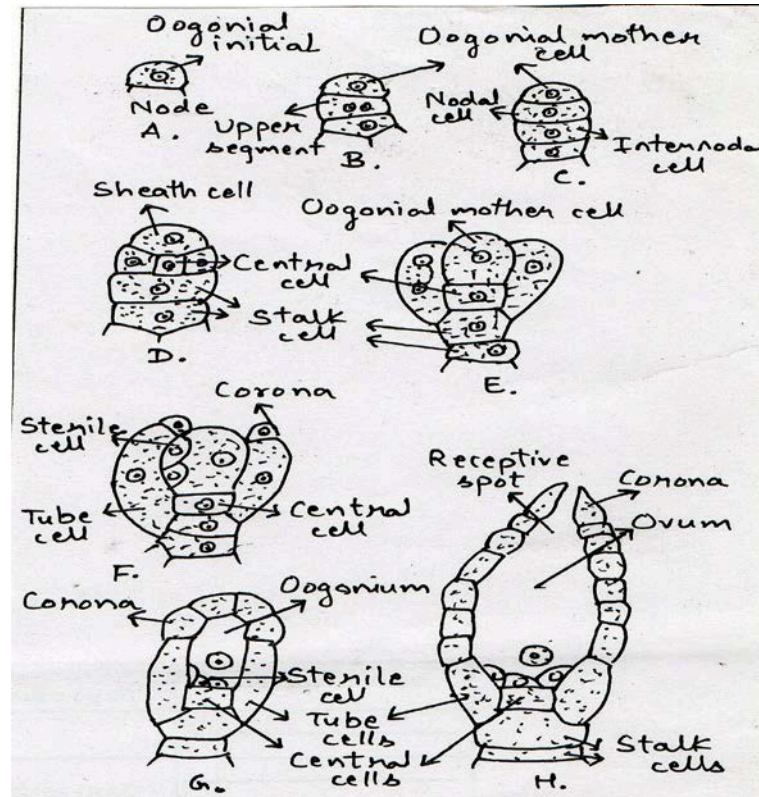 Oogonial
initial
Node
A.
Oogonial mother
cell
Upper
segment
B.
Nodal
cell
Internoda
cell
C.
Sheath cell
Central
cell
Stalk
cell
D.
Oogonial mother cell
E.
Corona
Sterile
cell
Tube
cell
Central
cell
F.
Receptive
spot
Corona
Ovum
Corona
Oogonium
Sterile
cell
Tube
cells
Central
cells
G.
Stalk
cells
H.